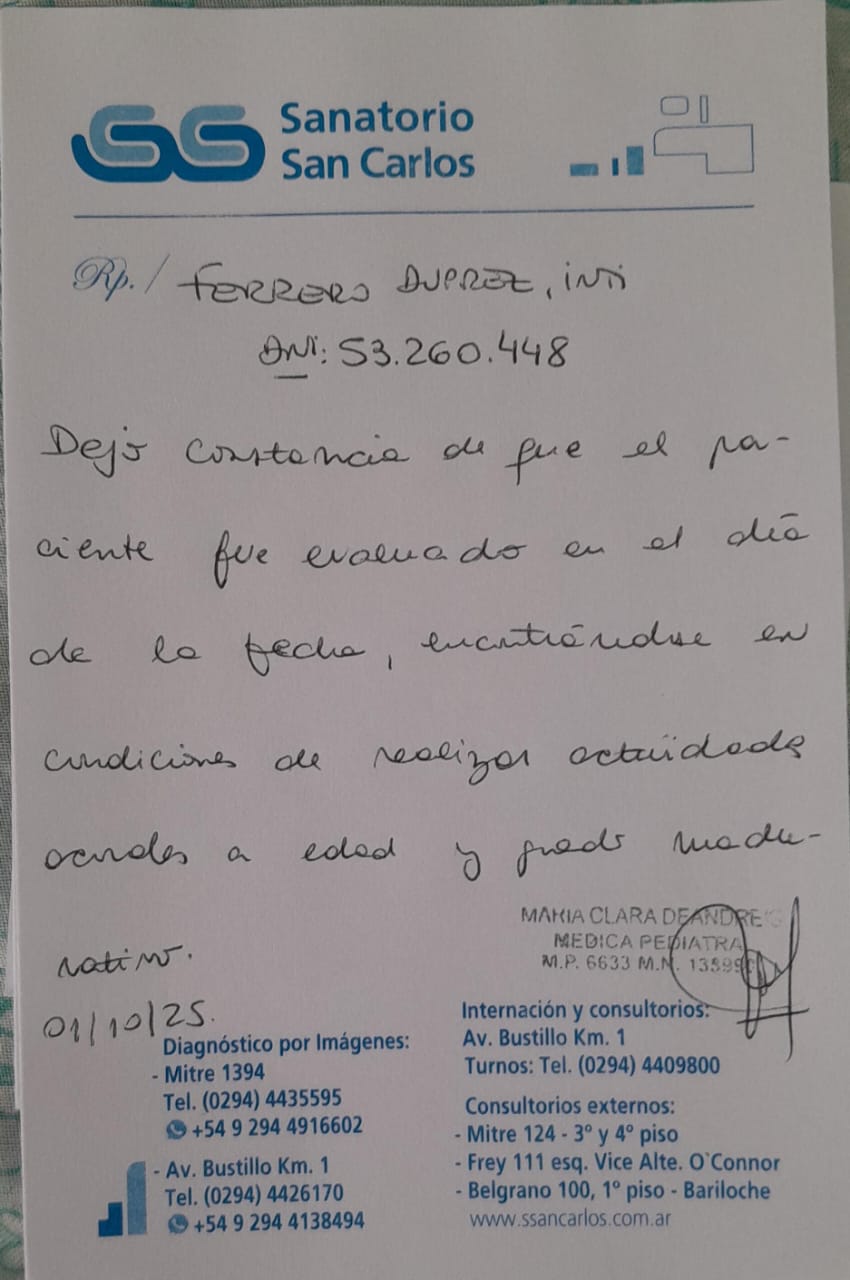 SS Sanatorio
San Carlos
Rp./ FERRERO DUPREZ, INTI
DNI: 53.260.448
Dejo constancia de que el pa-
ciente fue evaluado en el día
de la fecha, encontrándose en
condiciones de realizar actividades
acordes a edad y grado madu-
rativo.
01/10/25.
MARIA CLARA DEANDREIS
MEDICA PEDIATRA
M.P. 6633 M.N.
Diagnóstico por Imágenes:
- Mitre 1394
Tel. (0294) 4435595
+54 9 294 4916602
- Av. Bustillo Km. 1
Tel. (0294) 4426170
+54 9 294 4138494
Internación y consultorios:
Av. Bustillo Km. 1
Turnos: Tel. (0294) 4409800
Consultorios externos:
- Mitre 124 - 3º y 4º piso
- Frey 111 esq. Vice Alte. O`Connor
- Belgrano 100, 1º piso - Bariloche
www.ssancarlos.com.ar